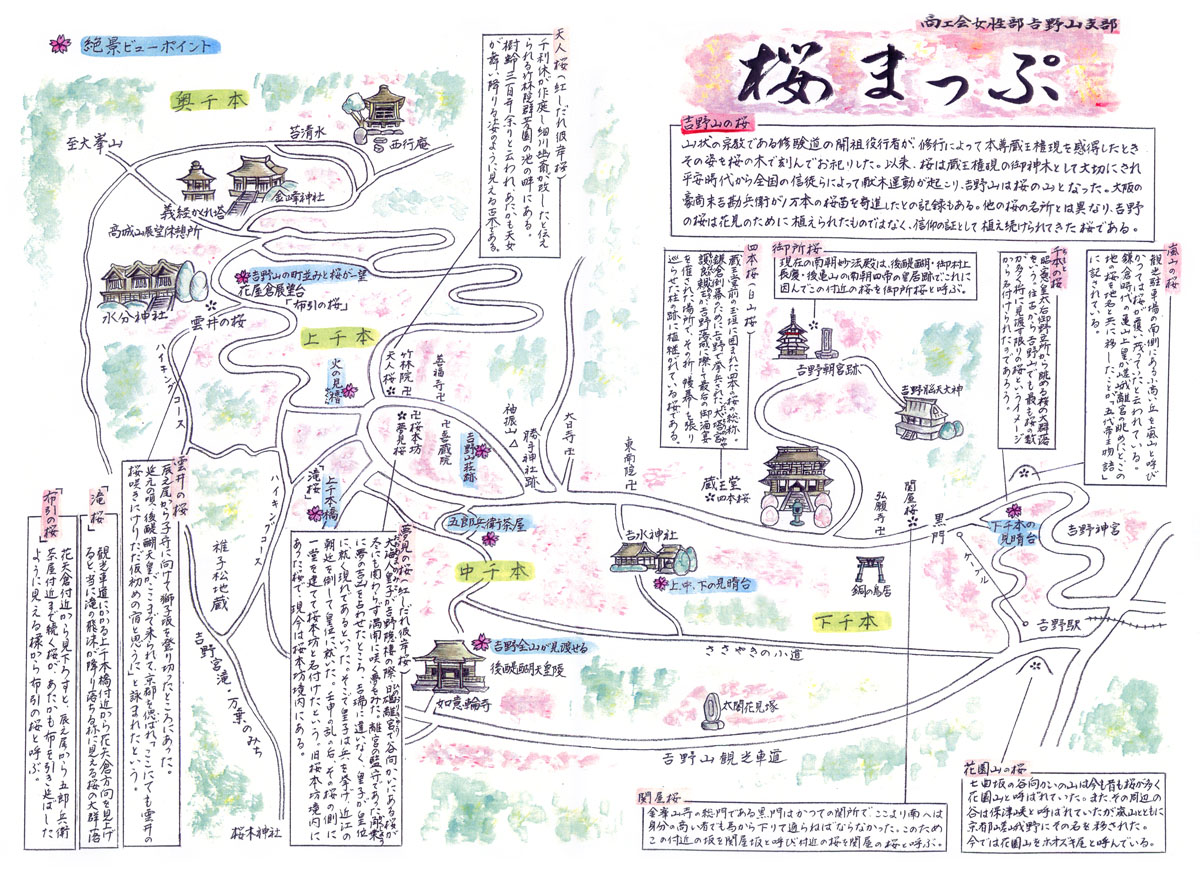 商工会女性部吉野山支部
桜まっぷ
絶景ビューポイント
吉野山の桜
山状の宗教である修験道の開祖役行者が、修行によって本尊蔵王権現を感得したとき
その姿を桜の木で刻んでお祀りした。以来、桜は蔵王権現の御神木として大切にされ
平安時代から全国の信徒らによって献木運動が起こり、吉野山は桜の山となった。大阪の
豪商末吉勘兵衛が1万本の桜苗を寄進したとの記録もある。他の桜の名所とは異なり、吉野
の桜は花見のために植えられたものではなく、信仰の証として植え続けられてきた桜である。
嵐山の桜
観光駐車場の南側にある小高い丘を嵐山と呼び
かつては桜が覆い茂っていたと云われている。
鎌倉時代の亀山上皇が嵯峨離宮の眺めにと、この
地の桜を地名と共に移したことが「五代帝王物語」
に記されている。
千本の桜
昭憲皇太后御野立所から眺める桜の大群落
をいう。往古から吉野山でも最も桜の数
が多く、一目に見渡す限りの桜というイメージ
から名付けられたのであろう。
御所桜
現在の南朝妙法殿は、後醍醐・御村上
長慶・後亀山の南朝四帝の皇居跡でこれに
因んでこの付近の桜を御所桜と呼ぶ。
四本桜(白山桜)
蔵王堂前の玉垣に囲まれた四本の桜の総称。
鎌倉倒幕のために吉野で挙兵された大塔宮
護良親王が吉野落城に際して最后の御酒宴
を催された場所で、その折、帳幕を張り
巡らせた柱の跡に植継がれている桜である。
天人桜(紅しだれ彼岸桜)
千利休が作庭し細川幽斎が改したと伝え
られる竹林院群芳園の池の畔にある。
樹齢三百年余りと云われ、あたかも天女
が舞い降りる姿のように見える古木である。
奥千本
至大峯山
苔清水
西行庵
金峰神社
義経かくれ塔
高城山展望休憩所
水分神社
吉野山の町並みと桜が一望
花矢倉展望台
「布引の桜」
雲井の桜
上千本
ハイキングコース
火の見櫓
竹林院卍
天人桜
善福寺卍
卍桜本坊
夢見桜
卍喜蔵院
吉野山荘跡
袖振山△
勝手神社跡
大日寺卍
東南院卍
上千本橋
「滝桜」
五郎兵衛茶屋
中千本
吉水神社
上、中、下の見晴台
蔵王堂
四本桜
吉野朝宮跡
吉野脳天大神
弘願寺卍
関屋桜
黒門
銅の鳥居
下千本の
見晴台
ケーブル
吉野神宮
吉野駅
下千本
ささやきの小道
吉野全山が見渡せる
後醍醐天皇陵
如意輪寺
太閤花見塚
吉野山観光車道
ハイキングコース
稚子松地蔵
吉野宮滝・万葉のみち
桜木神社
夢見の桜(紅しだれ彼岸桜)
大海人皇子が吉野滞在の際、日雄離宮で谷向かいにある桜が
冬にも関わらず満開に咲く夢をみた。離宮の監守であった
に夢の吉凶を占わせたところ、吉瑞に違いなく、皇子が皇位
に就く現れであるといった。そこで皇子は兵を挙げ、近江の
朝廷を倒して皇位に就いた。壬申の乱の后、その桜の側に
一堂を建てて桜本坊と名付けたという。旧桜本坊境内に
あった桜で、現今は桜本坊境内にある。
雲井の桜
辰之尾から子守に向けて獅子坂を登り切ったところにあった。
延元の頃、後醍醐天皇がここまで来られて、京都を偲ばれ「ここにても雲井の
桜咲きにけりただ仮初めの宿と思うに」と詠まれたという。
「滝桜」
観光車道にかかる上千本橋付近から花矢倉方向を見上げ
ると、当に滝の飛沫が降り落ちる様に見える桜の大群落
「布引の桜」
花矢倉付近から見下ろすと、辰之尾から五郎兵衛
茶屋付近まで続く桜が、あたかも布を引き延ばした
ように見える様から布引の桜と呼ぶ。
関屋桜
金峯山寺の総門である黒門はかつての関所で、ここより南へは
身分の高い者でも馬から下りて通らねばならなかった。このため
この付近の坂を関屋坂と呼び付近の桜を関屋の桜と呼ぶ。
花園山の桜
七曲坂の谷向かいの山は今も昔も桜が多く
花園山と呼ばれていた。また、その周辺の
谷は保津峡と呼ばれていたが嵐山とともに
京都嵯峨野にその名を移された。
今では花園山をホオズキ尾と呼んでいる。